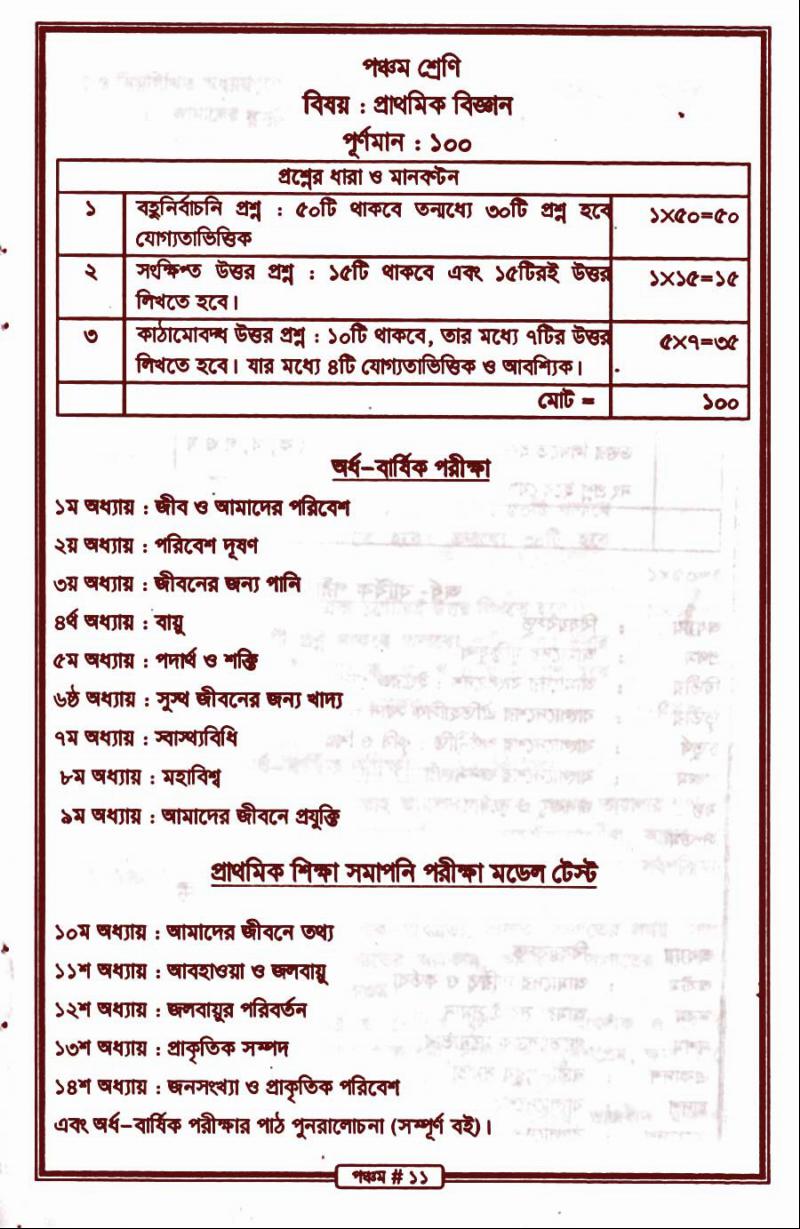 পঞ্চম শ্রেণি
বিষয় : প্রাথমিক বিজ্ঞান
পূর্ণমান : ১০০
প্রশ্নের ধারা ও মানবণ্টন
১ বহুনির্বাচনি প্রশ্ন : ৫০টি থাকবে তন্মধ্যে ৩০টি প্রশ্ন হবে ১×৫০=৫০
যোগ্যতাভিত্তিক
২ সংক্ষিপ্ত উত্তর প্রশ্ন : ১৫টি থাকবে এবং ১৫টিরই উত্তর ১×১৫=১৫
লিখতে হবে।
৩ কাঠামোবদ্ধ উত্তর প্রশ্ন : ১০টি থাকবে, তার মধ্যে ৭টির উত্তর ৫×৭=৩৫
লিখতে হবে। যার মধ্যে ৪টি যোগ্যতাভিত্তিক ও আবশ্যিক।
মোট = ১০০
অর্ধ-বার্ষিক পরীক্ষা
১ম অধ্যায় : জীব ও আমাদের পরিবেশ
২য় অধ্যায় : পরিবেশ দূষণ
৩য় অধ্যায় : জীবনের জন্য পানি
৪র্থ অধ্যায় : বায়ু
৫ম অধ্যায় : পদার্থ ও শক্তি
৬ষ্ঠ অধ্যায় : সুস্থ জীবনের জন্য খাদ্য
৭ম অধ্যায় : স্বাস্থ্যবিধি
৮ম অধ্যায় : মহাবিশ্ব
৯ম অধ্যায় : আমাদের জীবনে প্রযুক্তি
প্রাথমিক শিক্ষা সমাপনি পরীক্ষা মডেল টেস্ট
১০ম অধ্যায় : আমাদের জীবনে তথ্য
১১শ অধ্যায় : আবহাওয়া ও জলবায়ু
১২শ অধ্যায় : জলবায়ুর পরিবর্তন
১৩শ অধ্যায় : প্রাকৃতিক সম্পদ
১৪শ অধ্যায় : জনসংখ্যা ও প্রাকৃতিক পরিবেশ
এবং অর্ধ-বার্ষিক পরীক্ষার পাঠ পুনরালোচনা (সম্পূর্ণ বই)।
পঞ্চম # ১১